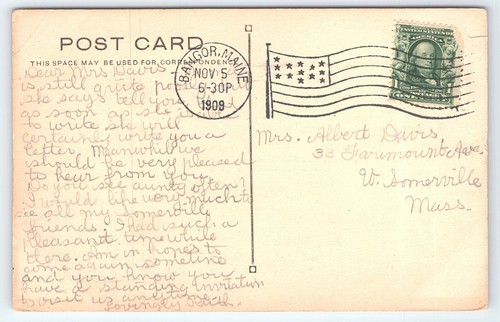 POST CARD
THIS SPACE MAY BE USED FOR CORRESPONDENCE
BANGOR, MAINE
NOV 5
6-30P
1909
Dear Mrs Davis.
is still quite
she says tell you
as soon as she is
to write she will
certainly write you a
letter. Meanwhile we
should be very pleased
to hear from you.
Do you see aunty often?
I would like very much to
see all my Somerville
friends. I had such a
pleasant time while
there. am in hopes to
come again sometime
and you know you
have a standing invitation
to visit us anytime.
Lovingly
Mrs. Albert Davis,
33 Fairmount Ave.
W. Somerville
Mass.